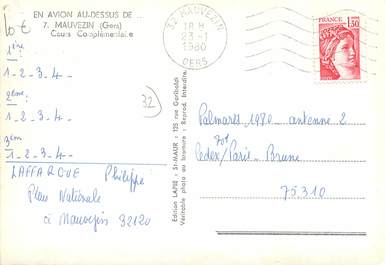 EN AVION AU-DESSUS DE ...
7. MAUVEZIN (Gers)
Cours Complémentaire
10€
1ère
1-2-3-4-
2ème
1-2-3-4-
3èm
1-2-3-4-
LAFFARGUE Philippe
Plan Nationale
à Mauvezin 32120
32
32 MAUVEZIN
18 H
23-1
1980
GERS
Edition LAPIE : St-MAUR : 125 rue Garibaldi
Véritable photo au bromure : Reprod. Interdite.
FRANCE
1,30
Palmarès 1980 antenne 2
701
Cedex/Paris-Brune
75310